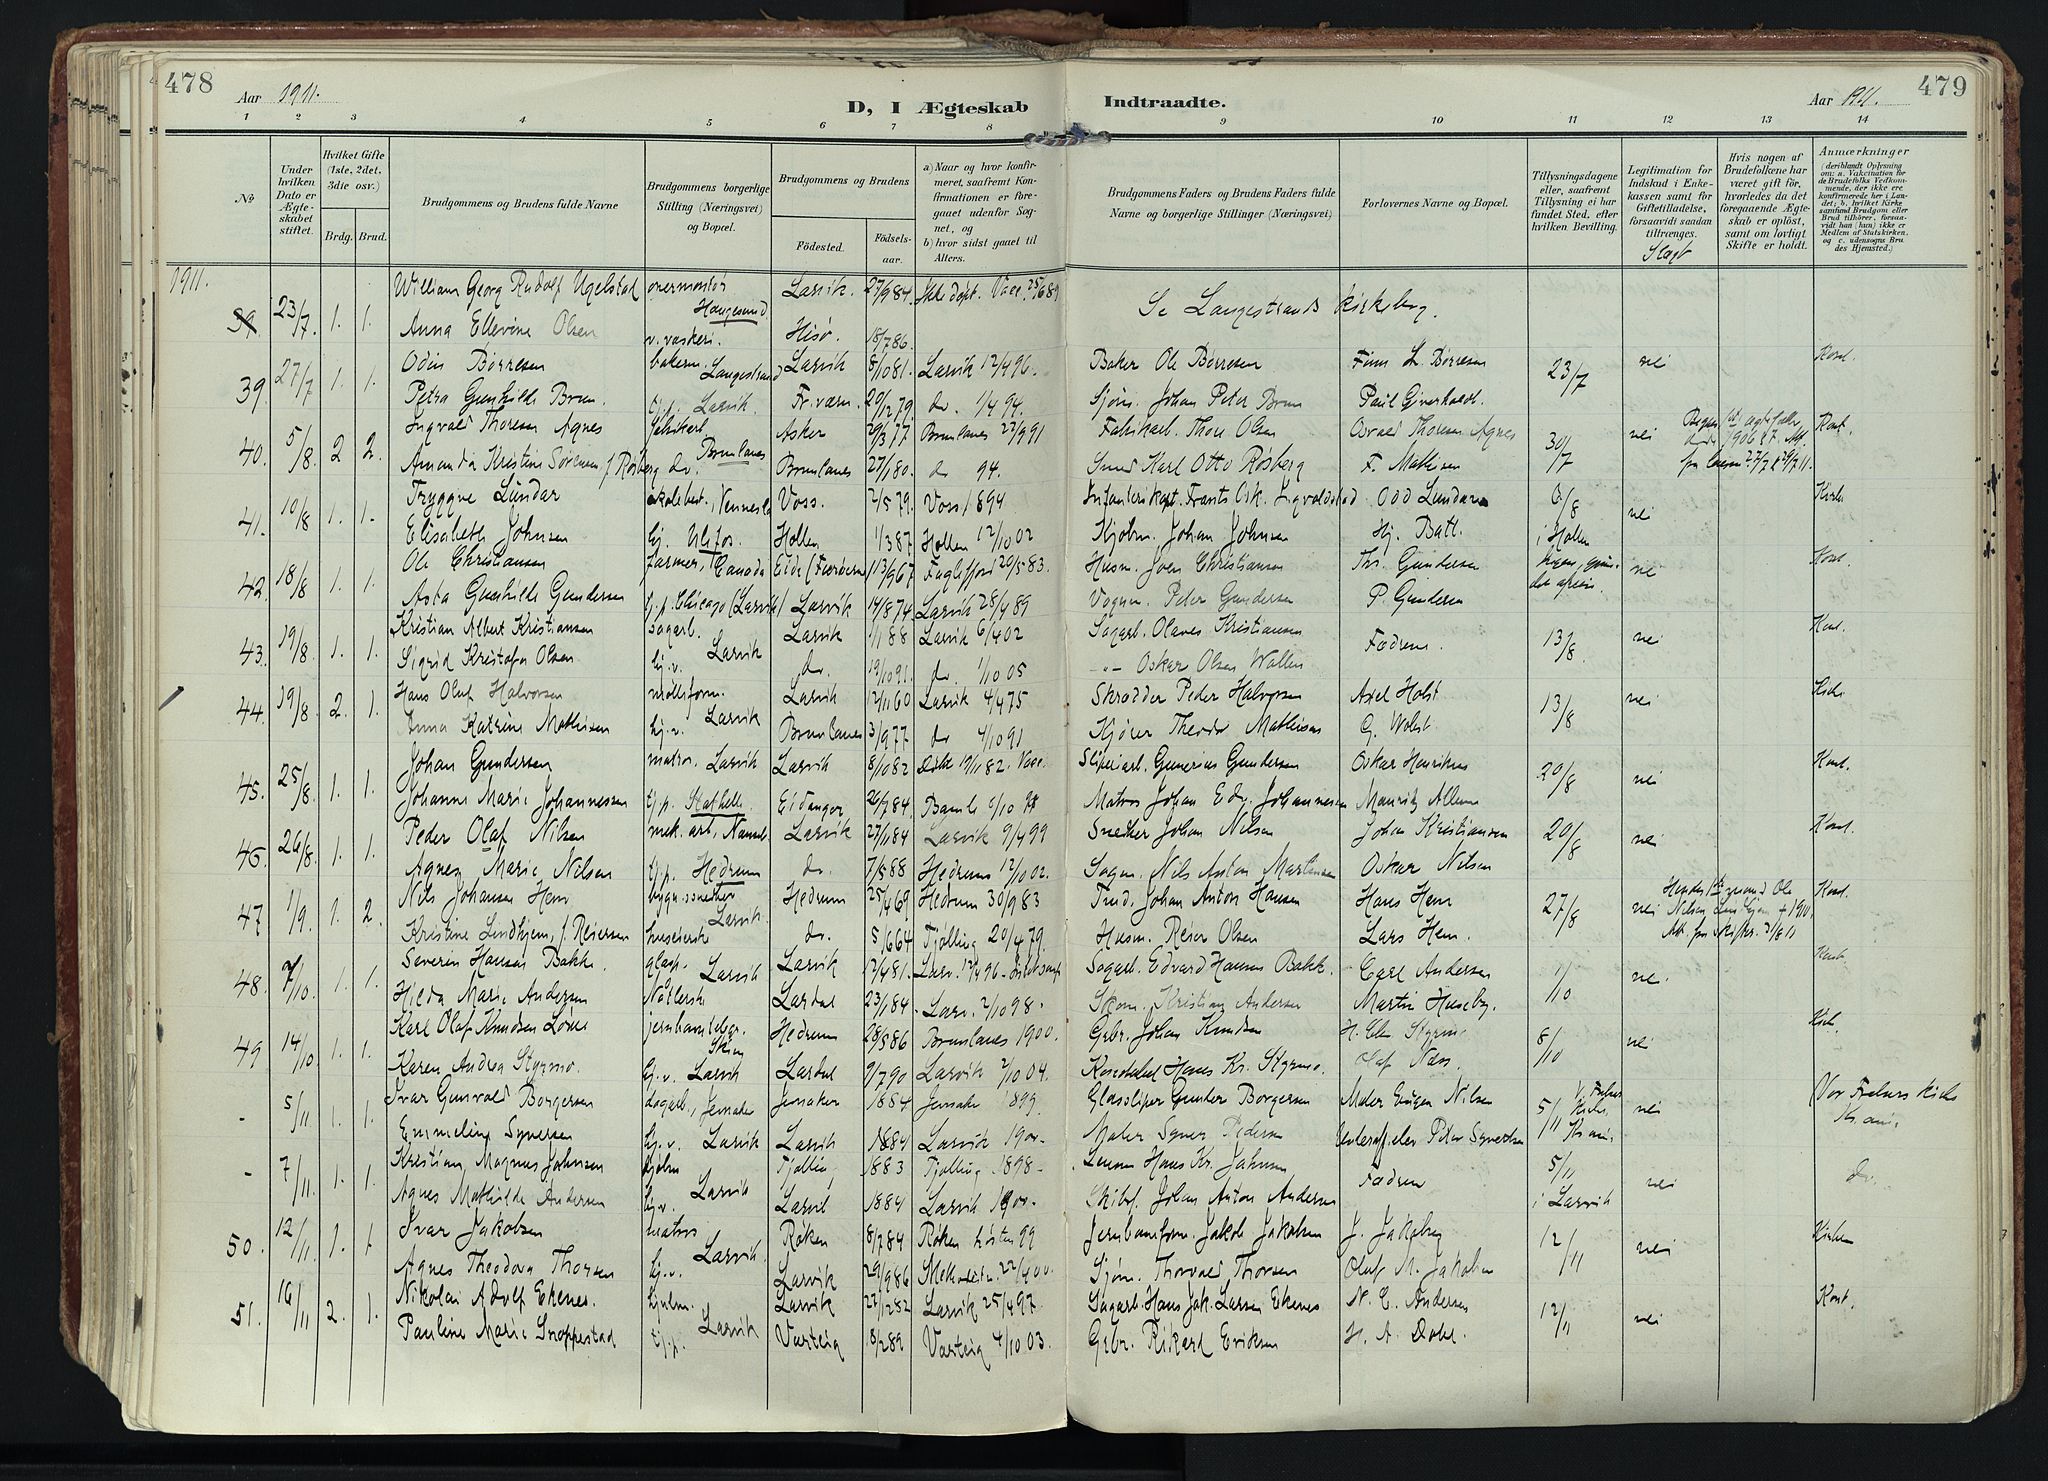 478
Aar 1911.
D, I Ægteskab Indtraadte.
Aar 1911.
479
1 2 3 4 5 6 7 8 9 10 11 12 13 14
No
Under hvilken Dato er Ægteskabet stiftet.
Hvilket Gifte (1ste, 2det, 3die osv.)
Brdg. Brud.
Brudgommens og Brudens fulde Navne
Brudgommens borgerlige Stilling (Næringsvei) og Bopæl.
Brudgommens og Brudens
Fødested. Fødselsaar.
a) Naar og hvor konfirmeret, saafremt Konfirmationen er foregaaet udenfor Sognet, og
b) hvor sidst gaaet til Alters.
Brudgommens Faders og Brudens Faders fulde Navne og borgerlige Stillinger (Næringsvei)
Forlovernes Navne og Bopæl.
Tillysningsdagene eller, saafremt Tillysning ei har fundet Sted, efter hvilken Bevilling.
Legitimation for Indskud i Enkekassen samt for Giftetilladelse, forsaavidt saadan tiltrænges.
Slægt
Hvis nogen af Brudefolkene har været gift før, hvorledes da det foregaaende Ægteskab er opløst, samt om lovligt Skifte er holdt.
Anmærkninger
(deriblandt Oplysning om: a. Vakcination for de Brudefolks Vedkommende, der ikke ere konfirmerede her i Landet; b. hvilket Kirkesamfund Brudgom eller Brud tilhører, forsaavidt han (hun) ikke er Medlem af Statskirken, og c. udensogns Brudes Hjemsted.)
1911.
39 23/7 1. 1. William Georg Rudolf Ugelstad overmontør Haugesund Larvik. 27/9 84. Ikke døpt. Vacc. 25/6 89 Se Langestrands kirkebog.
Anna Ellevine Olsen v. vaskeri Hisø 18/7 86.
39. 27/7 1. 1. Odin Børresen bakerm. Langestrand Larvik 8/10 81. Larvik 12/4 96. Baker Ole Børresen Finn L. Børresen 23/7 nei Kont.
Petra Gunhilde Brun tj.p. Larvik. Fr.værn. 29/12 79. do. 1/4 94. Sjøm. Johan Peter Brun Paul
40. 5/8 2 2. Ingvald Thoresen Agnes fabrikarb. Brunlanes Asker 29/3 77 Brunlanes 22/9 91 Fabrikarb. Thore Olsen Osvald Thoresen Agnes 30/7 nei Kont.
Amanda Kristine Sørensen f. Røsberg do. Brunlanes 27/1 80. do 94. Smed Karl Otto Røsberg F. Mathisen
41. 10/8 1. 1. Tryggve Lundar skolebest. Vennesla Voss. 2/5 79. Voss 1894 Odd Lundar 6/8 nei Kirke
Elisabeth Johnsen hj. Ulefos. Hollen 1/3 87 Hollen 12/10 02 Kjøbm. Johan Johnsen Hj. Batt. i Hollen
42. 18/8 1. 1. Ole Christiansen farmer, Canada Eide (Færøerne) 13/9 67 Fuglefjord 20/5 83. Husm. Joen Christiansen Th. Gundersen nei Kont.
Asta Gunhilde Gundersen tj.p. Chicago (Larvik) Larvik 14/8 74 Larvik 28/4 89 Vognm. Peter Gundersen P. Gundersen
43. 19/8 1. 1. Kristian Albert Kristiansen sagarb. Larvik Larvik 1/1 88 Larvik 6/4 02 Sagarb. Olaves Kristiansen Fædrene 13/8. nei Kont.
Sigrid Kristofa Olsen hj.v. do. 19/10 91. do. 1/10 05 -"- Oskar Olsen Wallen
44. 19/8 2. 1. Hans Oluf Halvorsen mølleform. Larvik Larvik 12/11 60 Larvik 4/4 75 Skrædder Peder Halvorsen Axel Holst 13/8 nei Kirke
Anna Katrine Mathisen hj.v. Brunlanes 3/9 77 do 4/10 91 Kjører Theodor Mathisen G. Wolst
45. 25/8 1. 1. Johan Gundersen matro. Larvik Larvik 8/10 82 Døbt 19/11 82. Vacc. Sliperiarb. Gunerius Gundersen Oskar Henriksen 20/8 nei Kont.
Johanne Marie Johannessen tj.p. Stathelle Eidanger 26/7 84. Bamle Matros Johan Edv. Johannesen Mauritz Allum
46. 26/8 1. 1. Peder Olaf Nilsen mek. arb. Larvik 27/1 84 Larvik 9/4 99 Snedker Johan Nilsen Johan Kristiansen 20/8 nei Kont.
Agnes Marie Nilsen tj.p. Hedrum do. 7/5 88 Hedrum 12/10 02. Sagm. Nils Anton Martinsen Oskar Nilsen
47 1/9. 1. 2. Nils Johansen Hem bygn.snedker Larvik Hedrum 25/4 69 Hedrum 30/9 83 Johan Anton Hansen Hans Hem 27/8 nei Hendes 1ste mand Ole Nilsen Lindhjem + 1910. Att. fra skifter. 31/8 11 Kont.
Kristine Lindhjem, f. Reiersen huseierske do. 5/6 64 Tjølling 20/4 79. Husm. Reier Olsen Lars Hem.
48. 7/10. 1. 1. Severin Hansen Bakke glasp. Larvik Larvik 12/4 81. Larv. 12/4 96 Sagarb. Edvard Hansen Bakk. Carl Andersen 1/10 nei. Kont.
Hilda Marie Andersen Nøtterø Lardal 23/1 84 Larv. 2/10 98 Skom. Kristian Andersen Martin Huseby.
49 14/10. 1. 1. Karl Olaf Knudsen jernbanetelegr. Skien Hedrum 28/5 86 Brunlanes 1900. Gbr. Johan Knudsen H. Styrmo 8/10 nei Kirk.
Karen Andrea Styrmo. hj.v. Larvik Lardal 9/7 90 Larvik 2/10 04. Hans Kr. Styrmo. Olaf Næss.
- 5/11 1. 1. Ivar Gunvald Borgersen dagarb., Jevnaker Jevnaker 1884 Jevnaker 1899 Glassliper Gunder Borgersen Maler Eugen Nilsen 5/11 V. Frelsers Kirke, Kr.ania. nei (Vor Frelsers kirke Kr.ania.
Emmeline Syversen hj.v. Larvik Larvik 1884 Larvik 190 Maler Syver Pedersen Peter Syvertsen
- 7/11. 1. 1. Kristian Magnus Johnsen Larvik Tjølling 1883 Tjølling 1898 Hans Kr. Johnsen Fædrene 5/11 i Larvik nei do.
Agnes Mathilde Andersen hj.v. Larvik 1884 Larvik 190 Skibsf. Johan Anton Andersen
50. 12/11. 1. 1 Ivar Jakobsen matros Larvik. Røken 8/7 84 Røken høsten 99 Jernbaneform. Jakob Jakobsen J. Jakobsen 12/11 nei Kirken
Agnes Theodora Thorsen hj.v. Larvik 29/9 86 Methodistk. 22/4 00. Sjøm. Thorvald Thorsen Oluf M. Jakobsen
51. 16/11 2. 1. Nikolai Adolf Ekenes. Larvik Larvik 22/12 82 Larvik 25/4 97. Sagarb. Hans Jak. Larsen Ekenes N. E. Andersen 12/11 nei Kont.
Pauline Marie Snoppestad tj.p. Varteig 18/2 89 Varteig 4/10 03. Gbr. Rikard Eriksen H. A. Dahl.